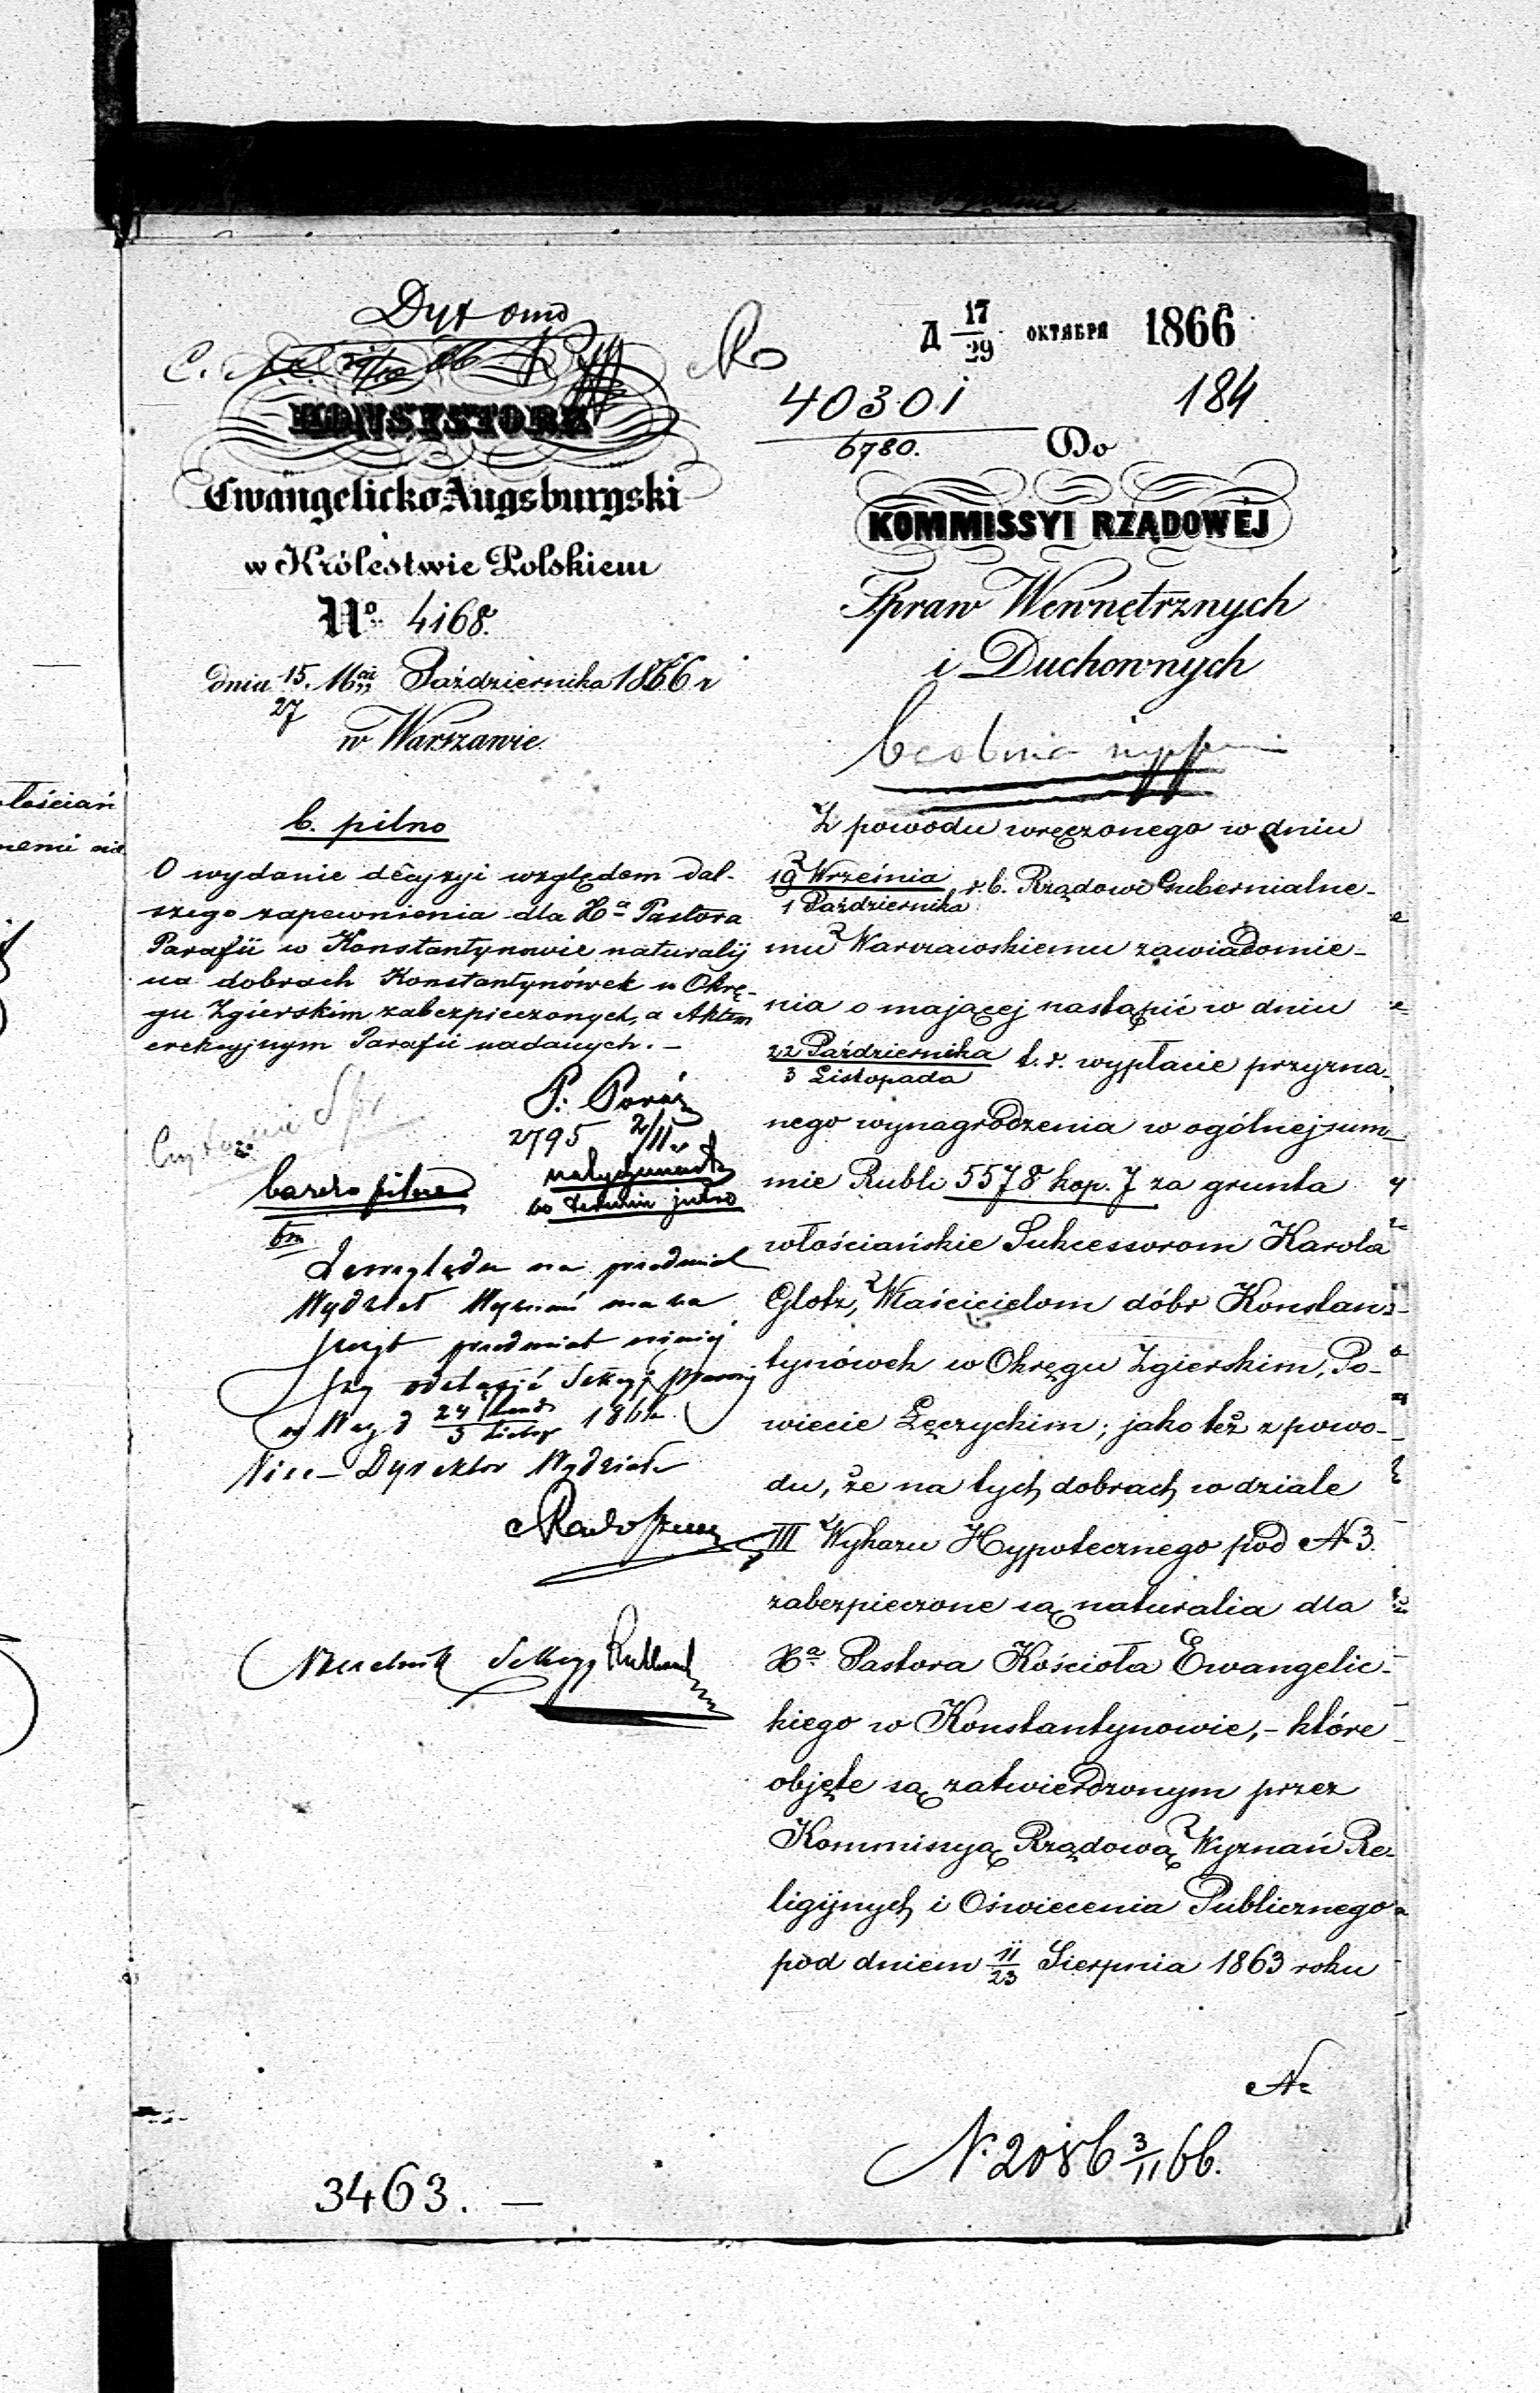 KONSYSTORZ
Ewangelicko Augsburgski
w Królestwie Polskiem
No. 4168.
dnia 15/27 Mca Października 1866 r
w Warszawie.
b. pilno
O wydanie decyzyi względem dal-
szego zapewnienia dla Xa Pastora
Parafii w Konstantynowie naturalij
na dobrach Konstantynówek w Okrę-
gu Zgierskim zabezpieczonych, a Aktem
erekcyjnym Parafii nadanych. —
2795 2/11
natychmiast
bardzo pilne
bo termin jutro
Ze względu na przedmiot
Wydział Wyznań ma za
przedmiot
Sekcyi
24/3 186
Vice-Dyrektor Wydziału
Naczelnik Sekcyi
3463. —
Д 17/29 ОКТЯБРЯ 1866
184
40301
6780.
Do
KOMMISSYI RZĄDOWÉJ
Spraw Wewnętrznych
i Duchownych
Z powodu wręczonego w dniu
19 Września / 1 Października r.b. Rządowi Gubernialne-
mu Warszawskiemu zawiadomie-
nia o mającej nastąpić w dniu
22 Października / 3 Listopada t.r. wypłacie przyzna-
nego wynagrodzenia w ogólnej sum-
mie Rubli 5578 kop. 7 za grunta
włościańskie Sukcessorom Karola
Glotz, Właścicielom dóbr Konstan-
tynówek w Okręgu Zgierskim, Po-
wiecie Łęczyckim; jako też z powo-
du, że na tych dobrach w dziale
III Wykazu Hypotecznego pod N 3.
zabezpieczone są naturalia dla
Xa Pastora Kościoła Ewangelic-
kiego w Konstantynowie, – które
objęte są zatwierdzonym przez
Kommissyą Rządową Wyznań Re-
ligijnych i Oświecenia Publicznego
pod dniem 11/23 Sierpnia 1863 roku
N. 2086 3/11 66.